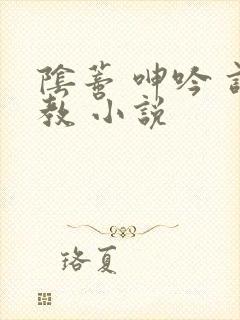 陰蒂 呻吟
教 小說
珞夏